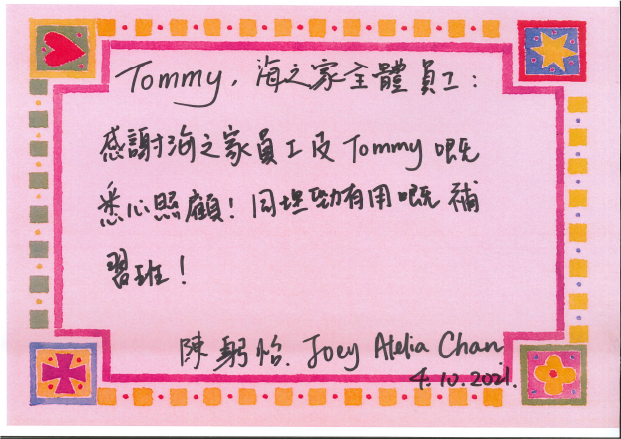 Tommy, 海之家全體員工:
感謝海之家員工及 Tommy 嘅
悉心照顧! 同埋勁有用嘅 補
習班!
陳躬怡. Joey Atelia Chan.
4.10.2021.